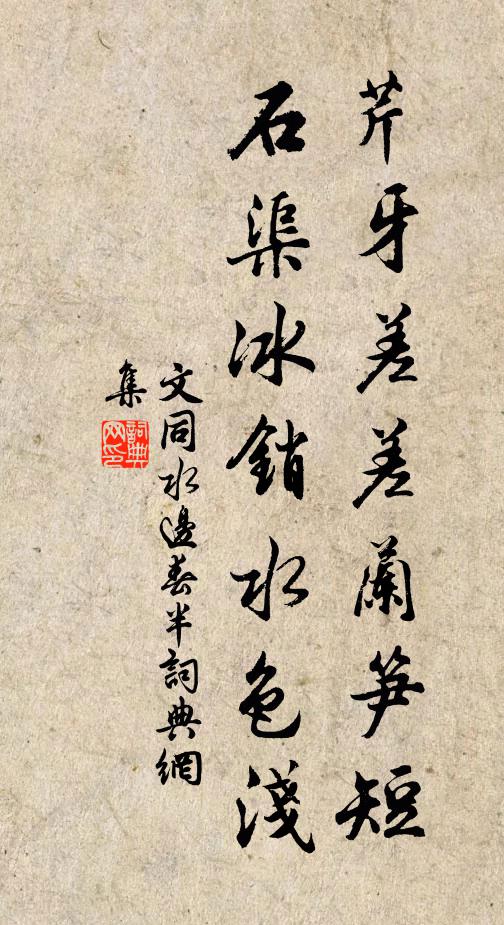 芹牙差差蘭笋短
石渠冰銷水色淺
文同水邊春半詞典網
集
詞典網印